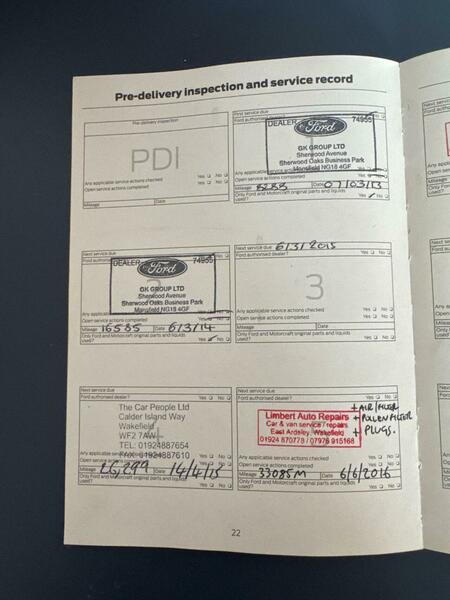 Pre-delivery inspection and service record
Pre-delivery inspection
PDI
Any applicable service actions checked Yes No
Open service actions completed Yes No
Mileage Date
First service due
Ford authorised
DEALER Ford 74955
GK GROUP LTD
Sherwood Avenue
Sherwood Oaks Business Park
Mansfield NG18 4GF
Any applicable
Open service actions completed Yes No
Mileage 8288 Date 07/03/13
Only Ford and Motorcraft original parts and liquids
used? Yes No
Next service due
Ford authorised
DEALER Ford 74955
2
GK GROUP LTD
Sherwood Avenue
Sherwood Oaks Business Park
Mansfield NG18 4GF
Any applicable
Open service actions completed Yes No
Mileage 16585 Date 6/3/14
Only Ford and Motorcraft original parts and liquids
used? Yes No
Next service due 6/3/2015
Ford authorised dealer? Yes No
3
Any applicable service actions checked Yes No
Open service actions completed Yes No
Mileage Date
Only Ford and Motorcraft original parts and liquids
used? Yes No
Next service due
Ford authorised dealer? Yes No
The Car People Ltd
Calder Island Way
Wakefield
WF2 7AW
TEL: 01924887654
FAX: 01924887610
4
Any applicable
Open service actions completed Yes No
Mileage 26,299 14/4/15
Only Ford and Motorcraft original parts and liquids
used? Yes No
Next service due
Ford authorised dealer?
Limbert Auto Repairs
Car & van service / repairs
East Ardsley, Wakefield
01924 870778 / 07976 915168
+ AIR/FILTER
+ POLLEN FILTER
+ PLUGS.
Any applicable service actions checked Yes No
Open service actions completed Yes No
Mileage 33085M 6/6/2016
Only Ford and Motorcraft original parts and liquids
used? Yes No
22